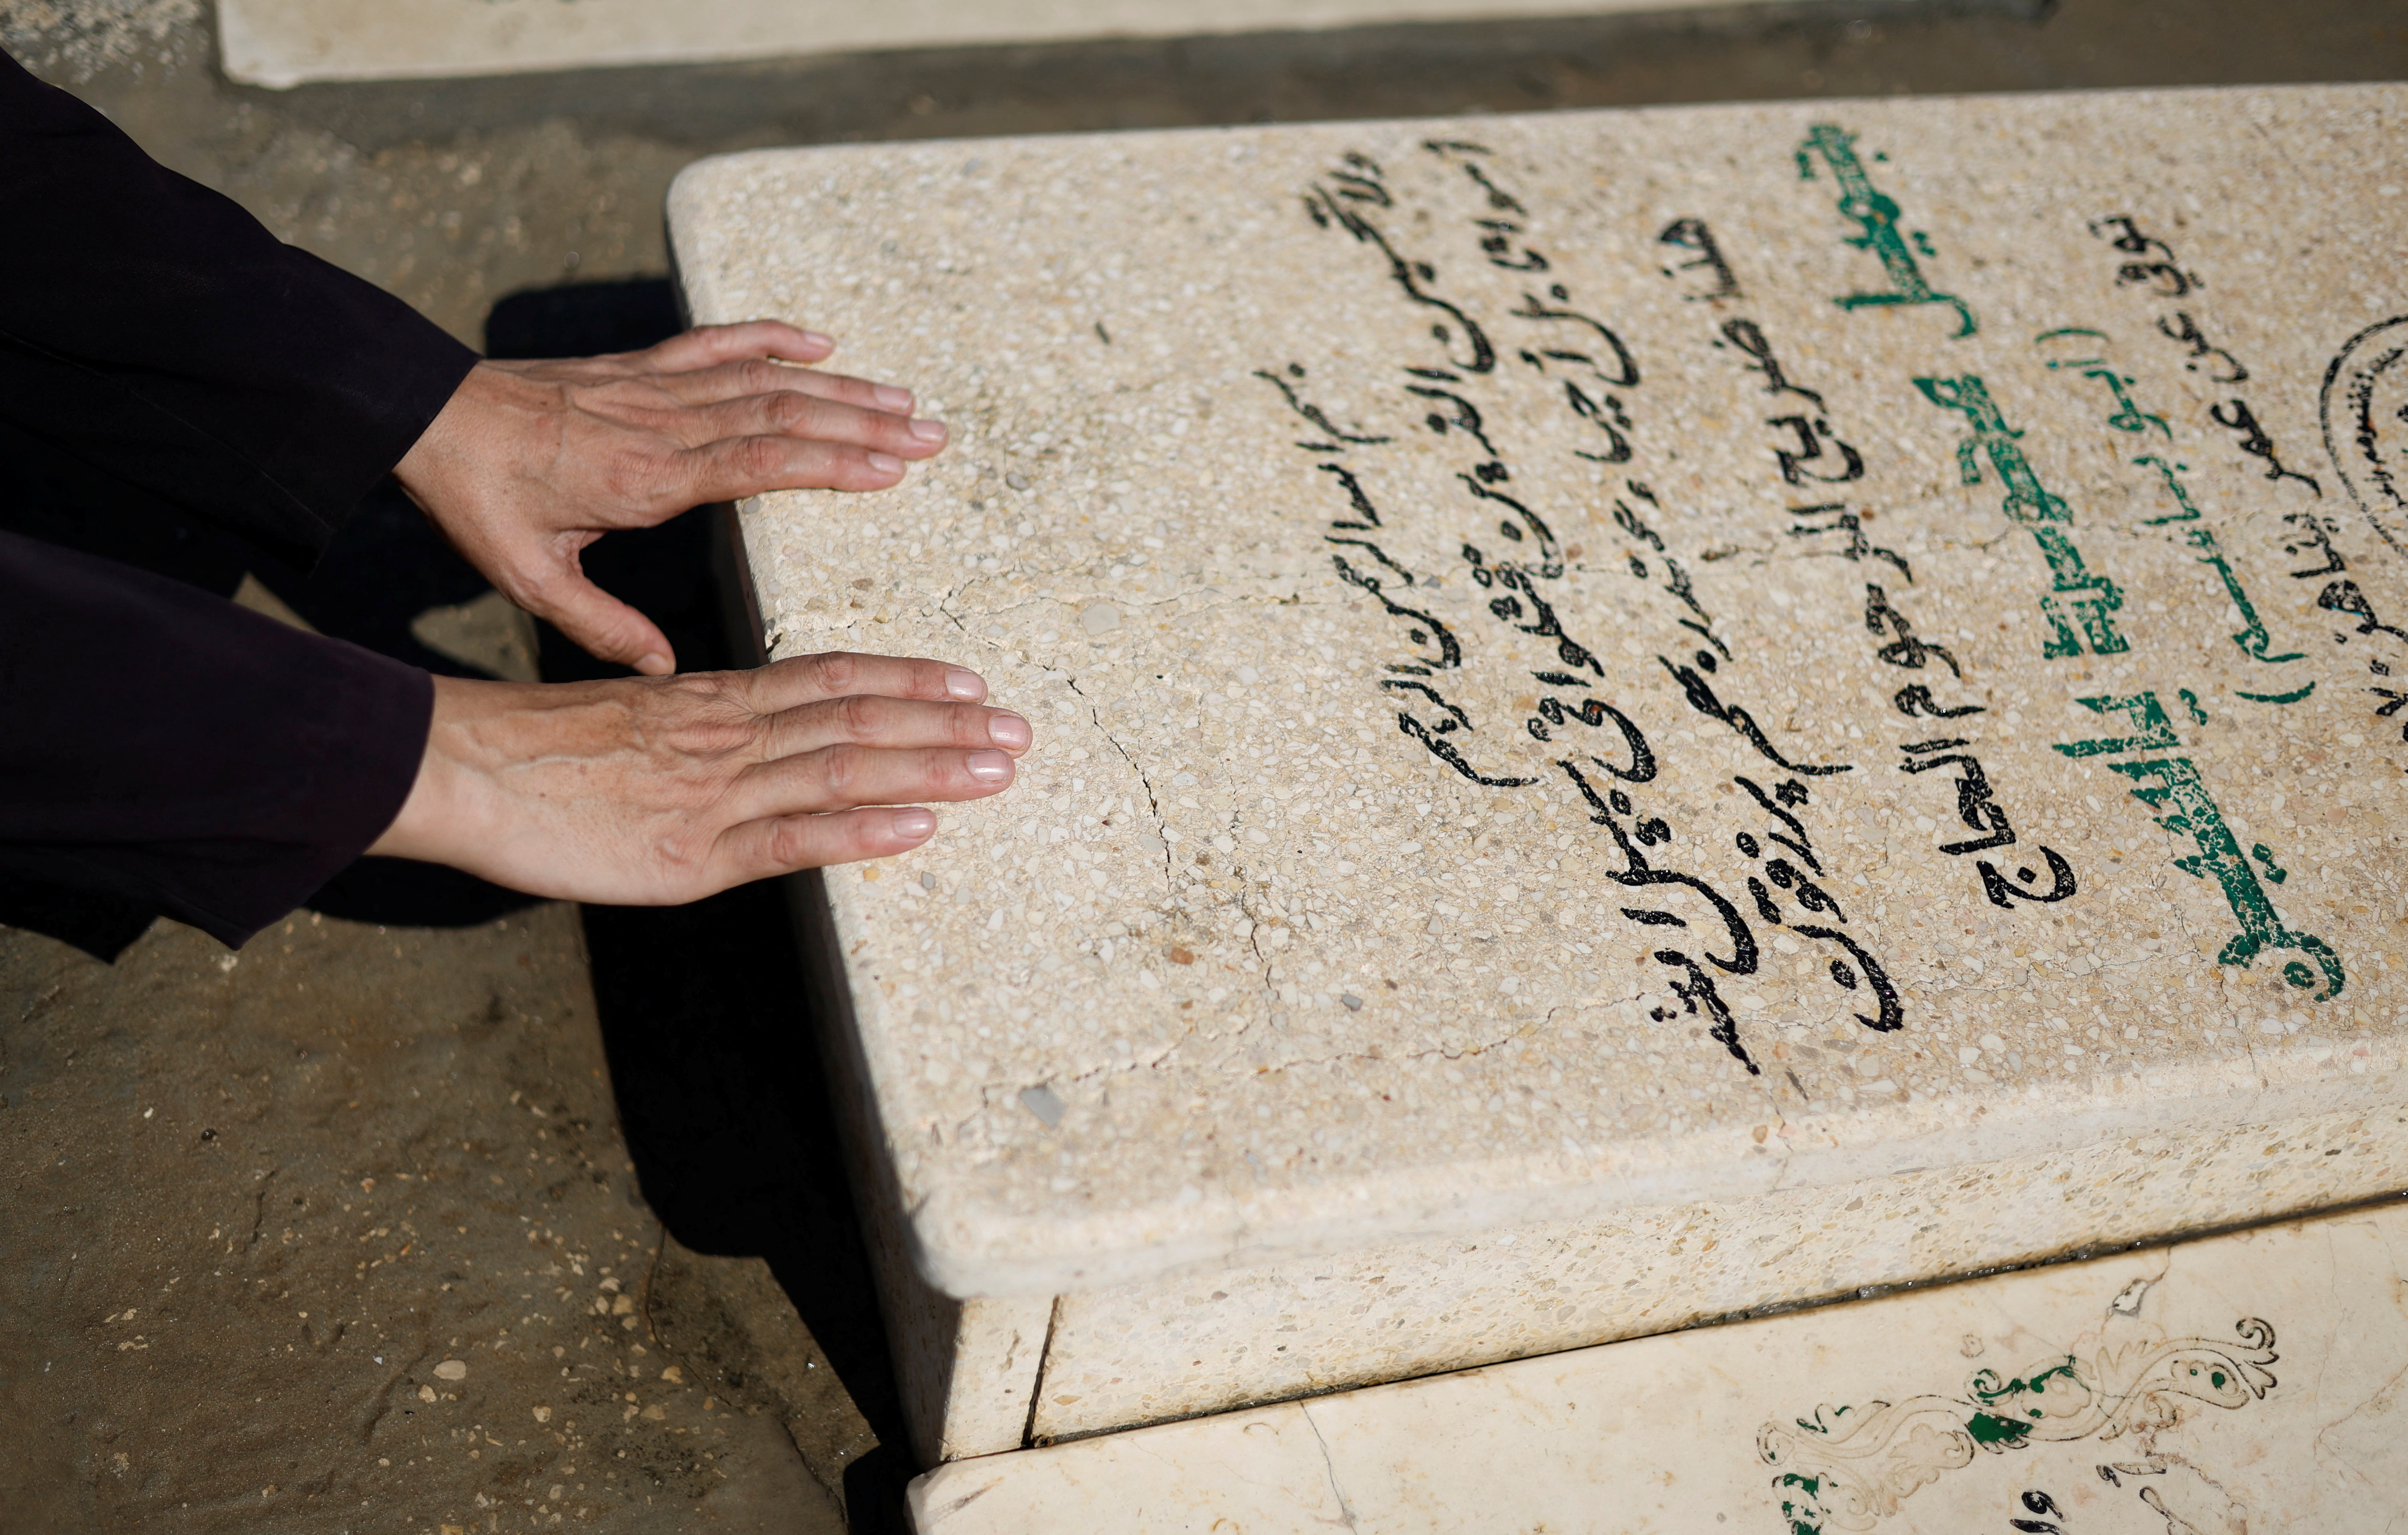 بسم الله الرحمن الرحيم
ولا تحسبن الذين قتلوا في سبيل الله
امواتا بل أحياء عند ربهم يرزقون
هذا ضريح المرحوم الحاج
خليل محمود
(ابو باسم)
توفي عن عمر يناهز